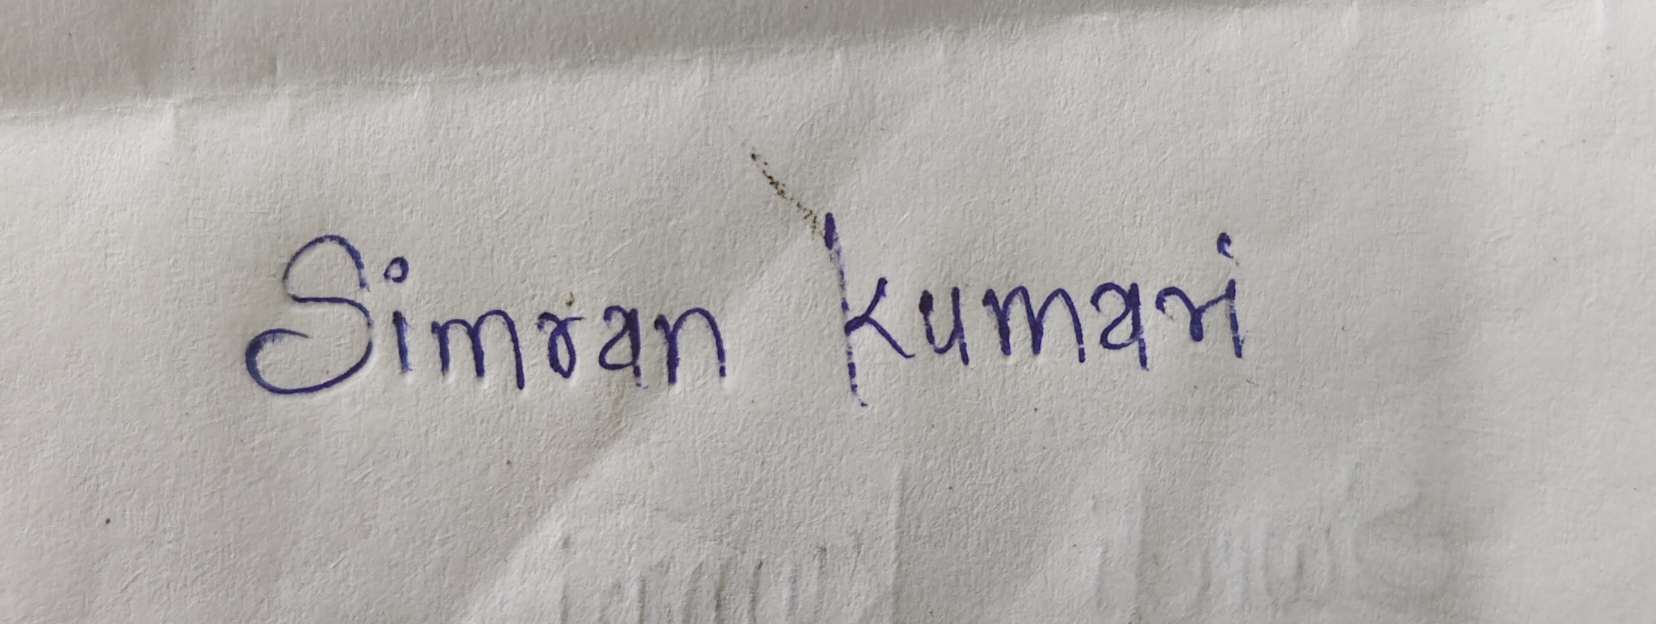 Simran kumari